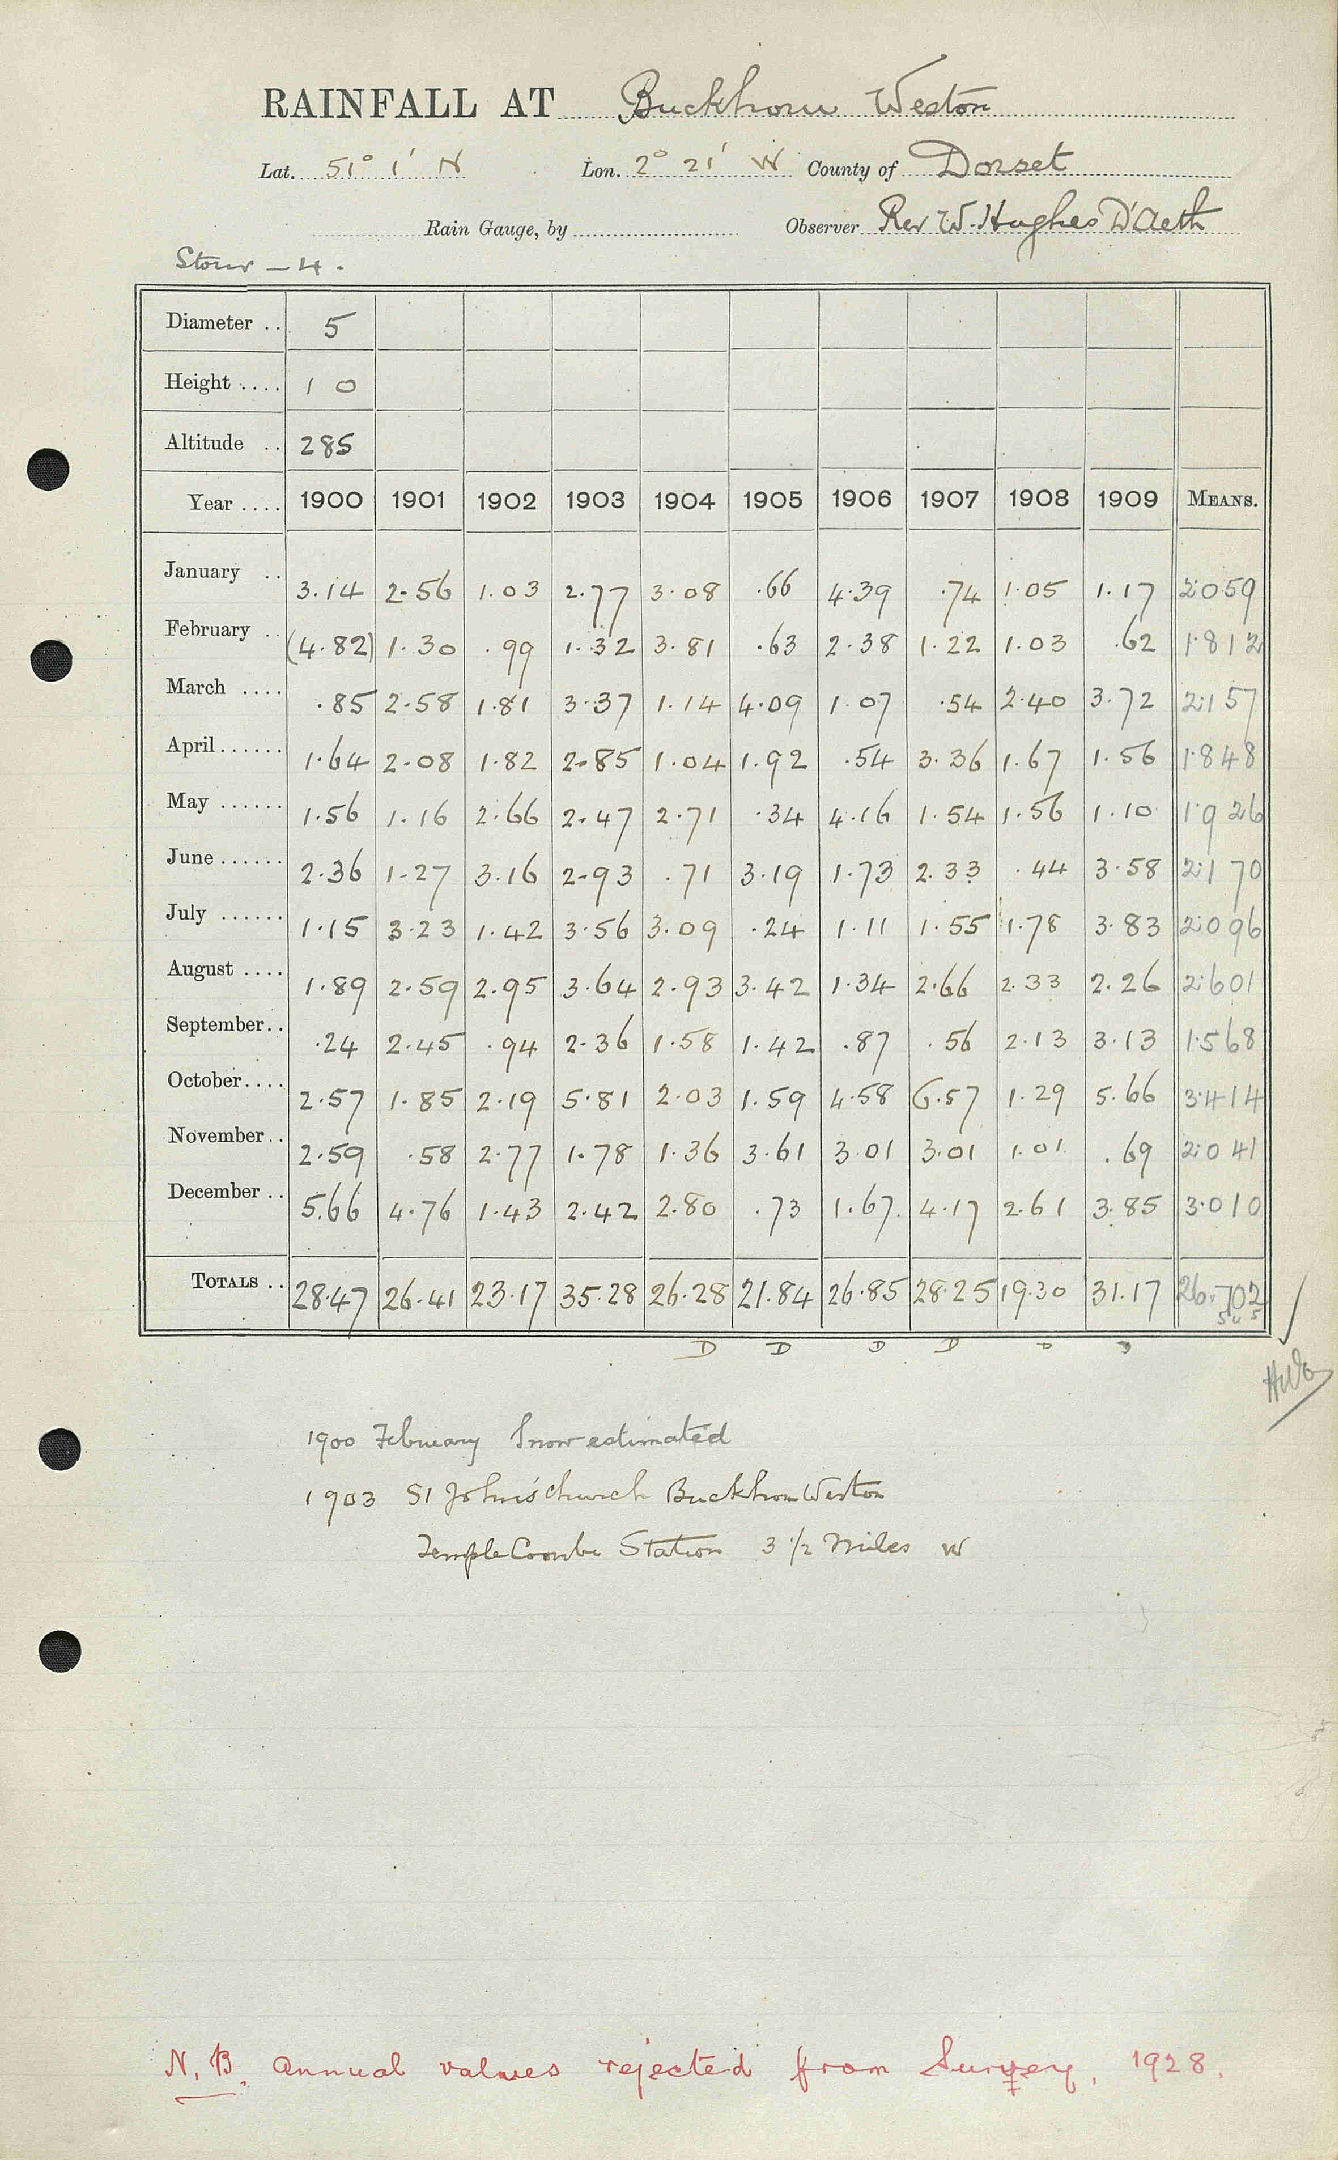 RAINFALL AT Buckhorn Weston
Lat. 51° 1' N Lon. 2° 21' W County of Dorset
Rain Gauge, by Observer Rev W. Hughes D'Aeth
Stour - 4.
Diameter .. 5
Height .... 1 0
Altitude .. 285
Year .... 1900 1901 1902 1903 1904 1905 1906 1907 1908 1909 MEANS.
January .. 3.14 2.56 1.03 2.77 3.08 .66 4.39 .74 1.05 1.17 2.059
February .. (4.82) 1.30 .99 1.32 3.81 .63 2.38 1.22 1.03 .62 1.812
March .... .85 2.58 1.81 3.37 1.14 4.09 1.07 .54 2.40 3.72 2.157
April ...... 1.64 2.08 1.82 2.85 1.04 1.92 .54 3.36 1.67 1.56 1.848
May ...... 1.56 1.16 2.66 2.47 2.71 .34 4.16 1.54 1.56 1.10 1.926
June ...... 2.36 1.27 3.16 2.93 .71 3.19 1.73 2.33 .44 3.58 2.170
July ...... 1.15 3.23 1.42 3.56 3.09 .24 1.11 1.55 1.78 3.83 2.096
August .... 1.89 2.59 2.95 3.64 2.93 3.42 1.34 2.66 2.33 2.26 2.601
September.. .24 2.45 .94 2.36 1.58 1.42 .87 .56 2.13 3.13 1.568
October.... 2.57 1.85 2.19 5.81 2.03 1.59 4.58 6.57 1.29 5.66 3.414
November.. 2.59 .58 2.77 1.78 1.36 3.61 3.01 3.01 1.01 .69 2.041
December .. 5.66 4.76 1.43 2.42 2.80 .73 1.67 4.17 2.61 3.85 3.010
TOTALS .. 28.47 26.41 23.17 35.28 26.28 21.84 26.85 28.25 19.30 31.17 26.702
D D D D D D
1900 February Snow estimated
1903 St John's Church Buckhorn Weston
Temple Coombe Station 3 1/2 Miles W
N.B. Annual values rejected from Survey, 1928.